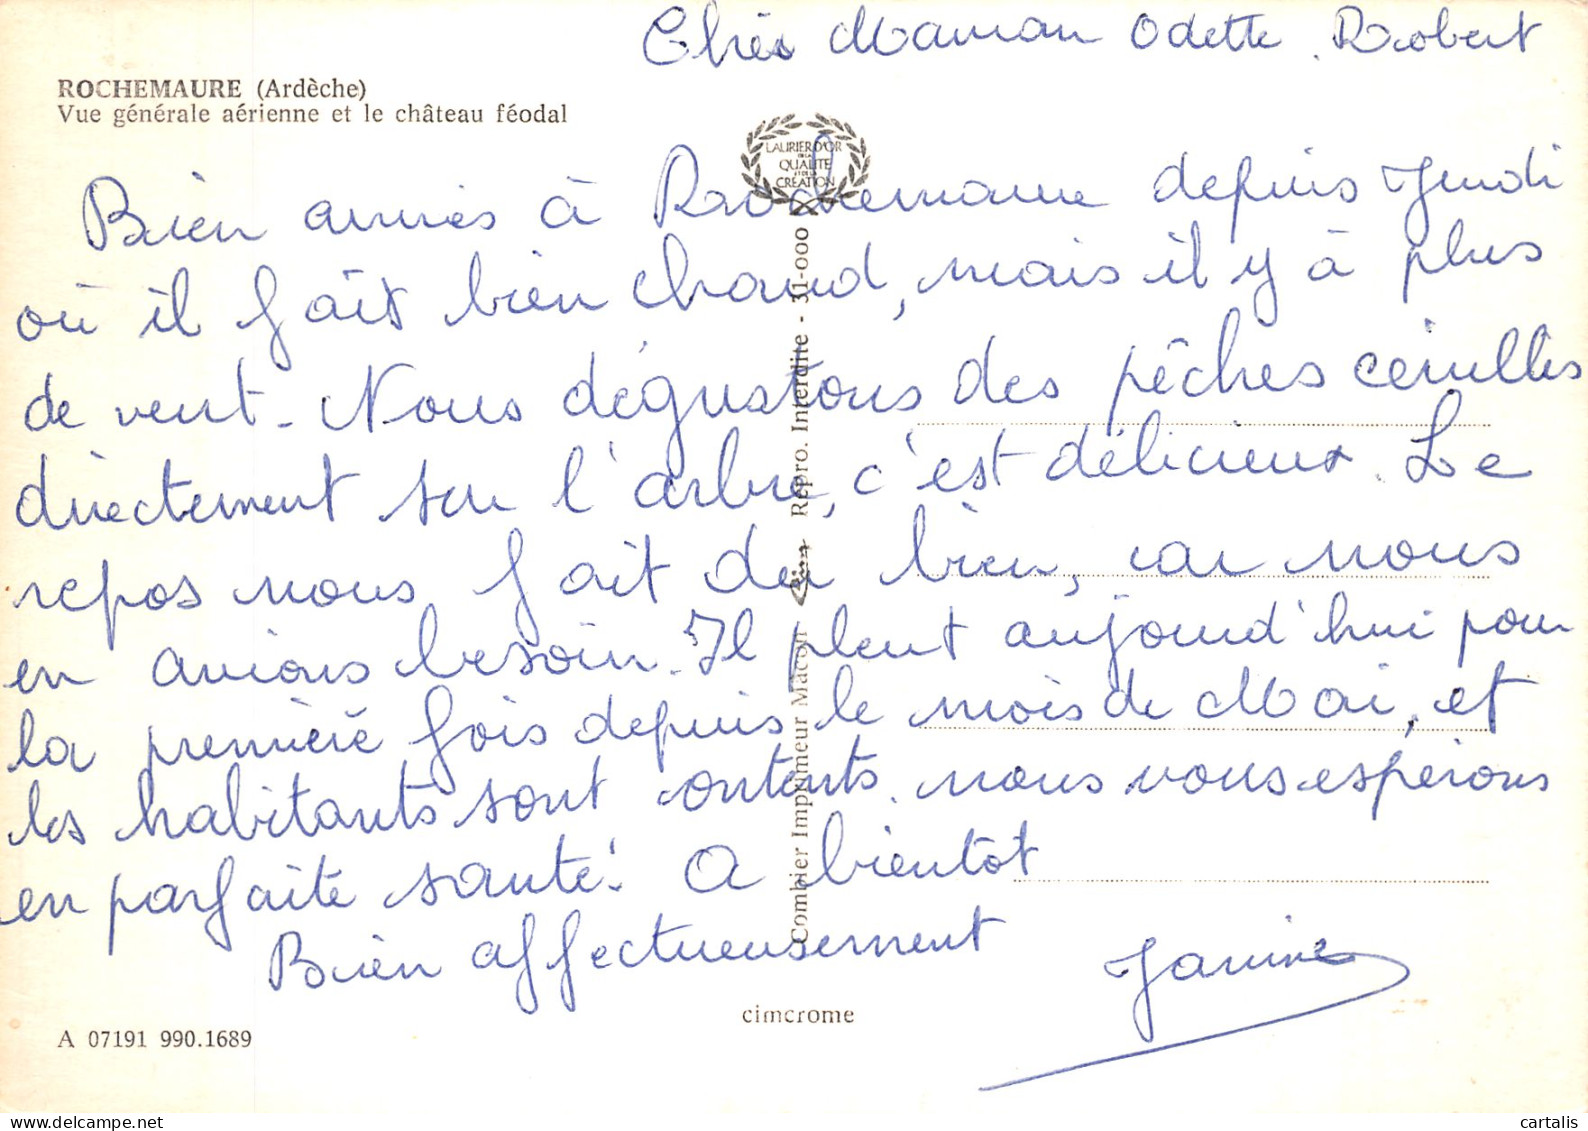 Chers Maman Odette. Robert
ROCHEMAURE (Ardèche)
Vue générale aérienne et le château féodal
LAURIER D'OR
DE LA
QUALITÉ
ET DE LA
CRÉATION
Bien arrivés à Rochemaure depuis Jeudi
où il fait bien chaud, mais il y à plus
de vent. Nous dégustons des pêches ceuillies
directement sur l'arbre, c'est délicieux. Le
repos nous fait du bien, car nous
en avions besoin. Il pleut aujourd'hui pour
la première fois depuis le mois de Mai, et
les habitants sont contents. nous vous esperons
en parfaite santé. A bientôt
Bien affectueusement
Janine
Combier Imprimeur Macon Cim Repro. Interdite - 31-000
cimcrome
A 07191 990.1689
www.delcampe.net
cartalis